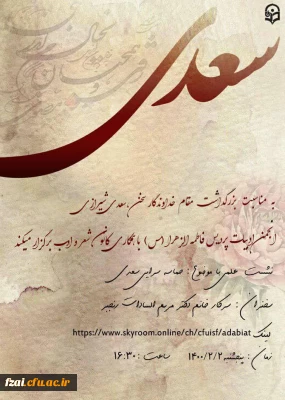 سعدی
به مناسبت بزرگداشت مقام خداوندگار سخن، سعدی شیرازی
انجمن ادبیات پردیس فاطمه الزهرا (س) با همکاری کانون شعر و ادب برگزار میکند
نشست علمی با موضوع : حماسه سرایی سعدی
سخنران : سرکار خانم دکتر مریم السادات رنجبر
لینک https://www.skyroom.online/ch/cfuisf/adabiat
زمان : پنجشنبه ۱۴۰۰/۲/۲ ساعت : ۱۶:۳۰
fzai.cfu.ac.ir